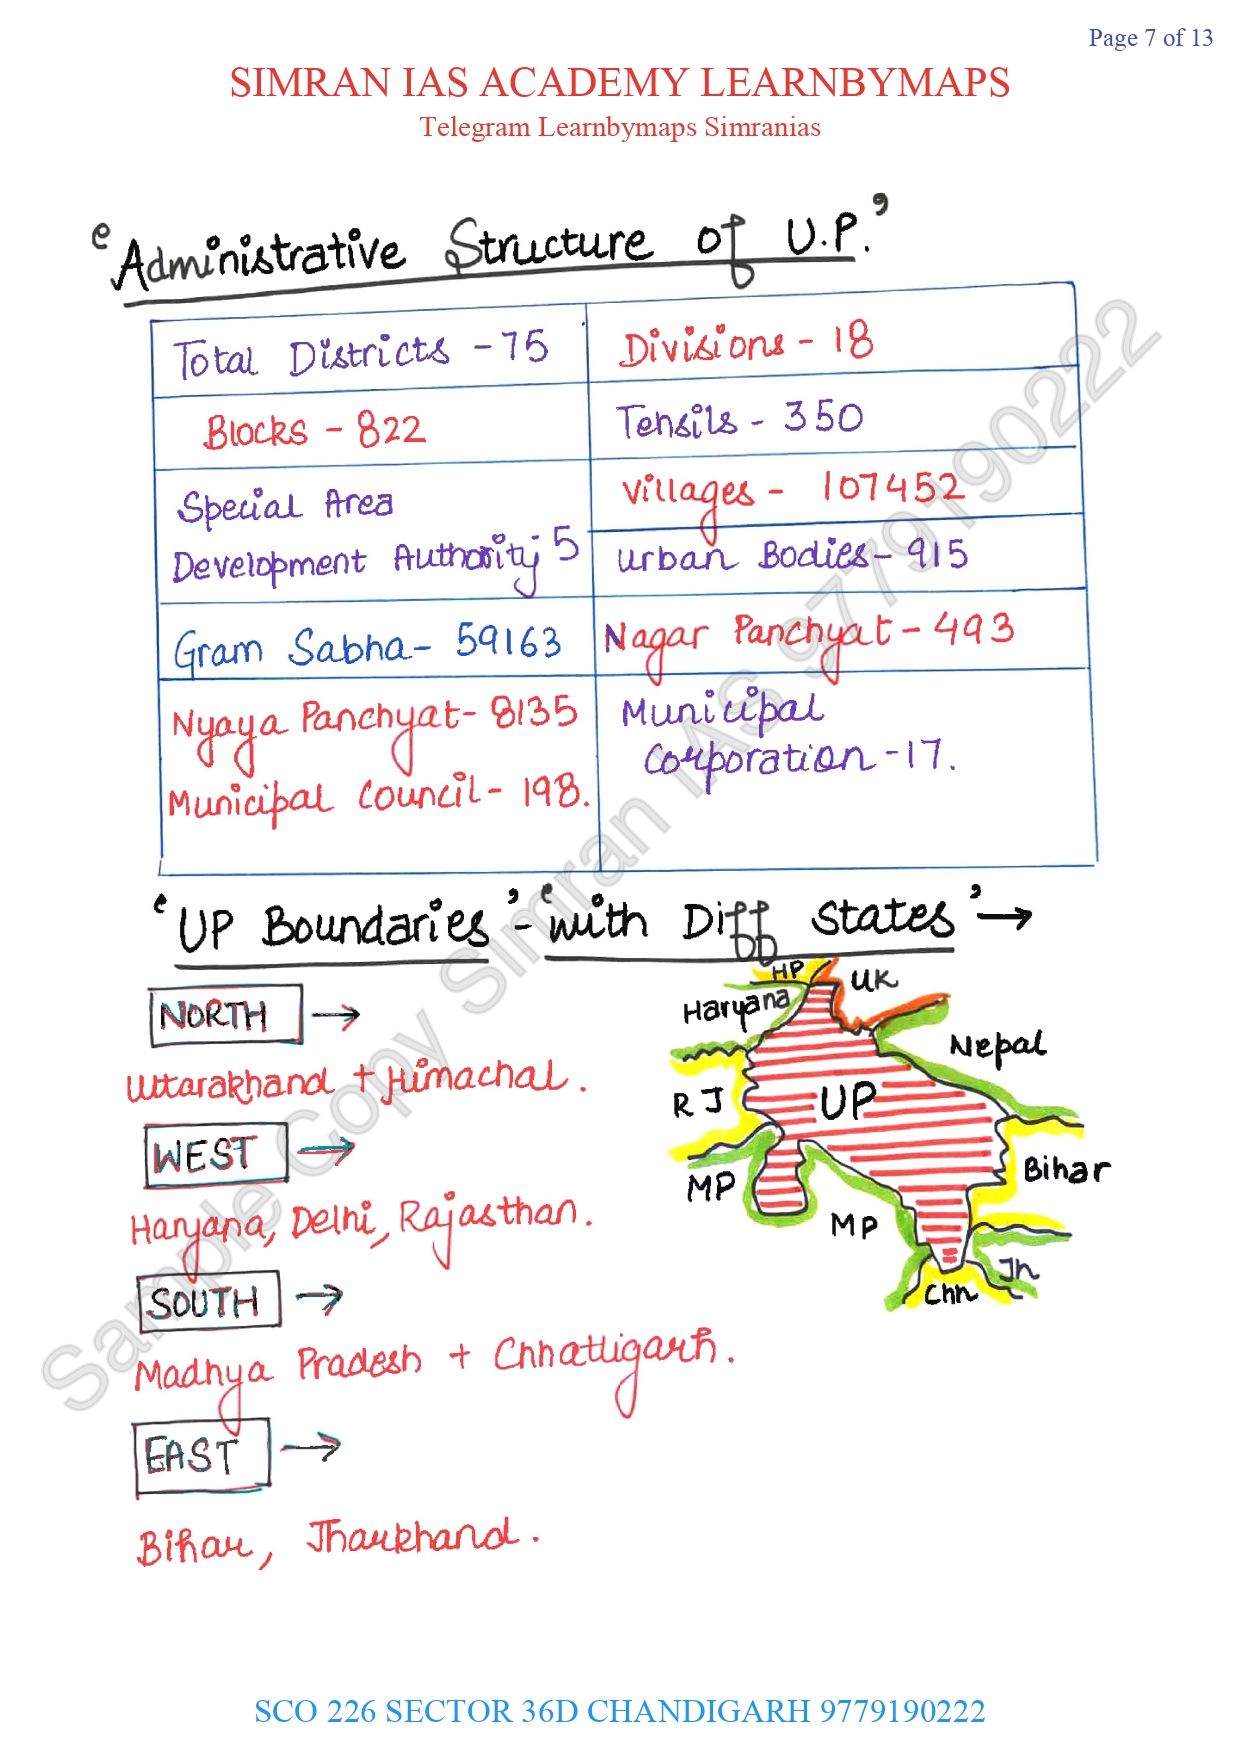 Page 7 of 13
SIMRAN IAS ACADEMY LEARNBYMAPS
Telegram Learnbymaps Simranias
'Administrative Structure of U.P.'
Total Districts - 75
Divisions - 18
Blocks - 822
Tehsils - 350
Special Area
Development Authority- 5
Villages - 107452
Urban Bodies - 915
Gram Sabha - 59163
Nagar Panchyat - 493
Nyaya Panchyat - 8135
Municipal Council - 198.
Municipal
Corporation - 17.
'UP Boundaries' - 'with Diff States' →
NORTH →
Uttarakhand + Himachal.
WEST →
Haryana, Delhi, Rajasthan.
SOUTH →
Madhya Pradesh + Chhattigarh.
EAST →
Bihar, Jharkhand.
HP
UK
Haryana
Nepal
RJ
UP
MP
Bihar
MP
Jh
Chh
Sample Copy Simran IAS 9779190222
SCO 226 SECTOR 36D CHANDIGARH 9779190222